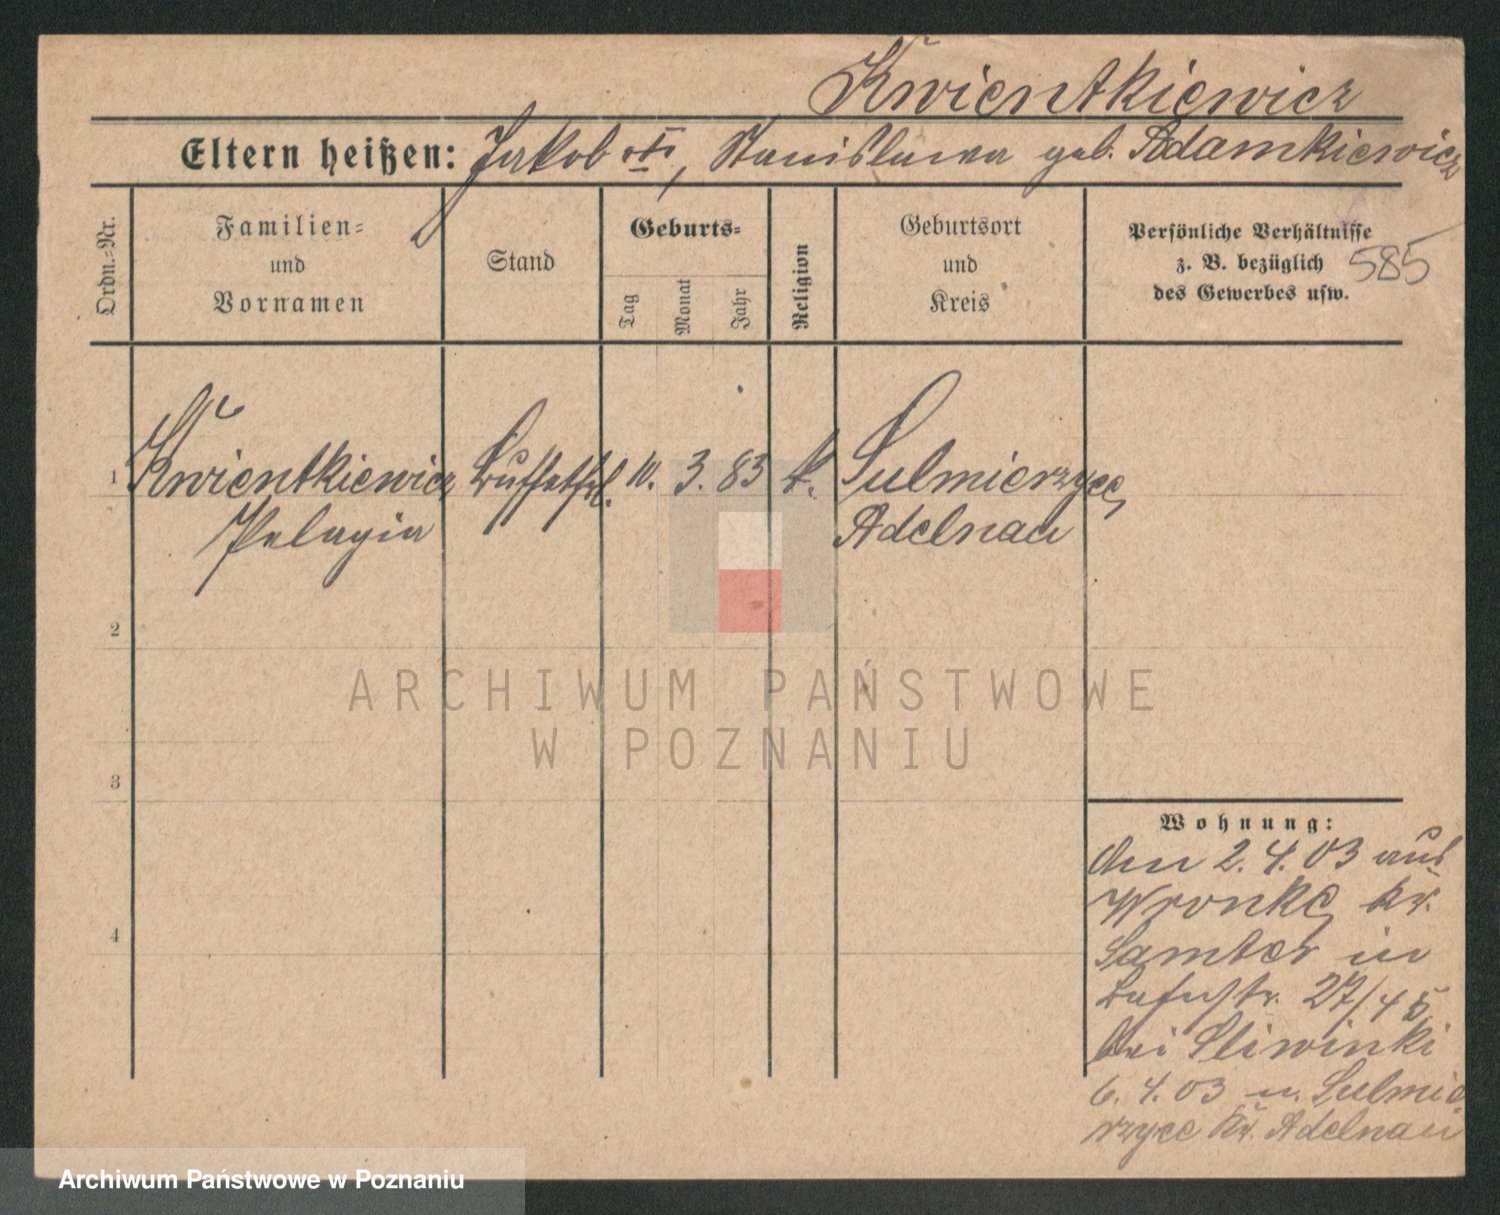 Kwientkiewicz
Eltern heißen: Jakob, Stanislawa geb. Adamkiewicz
Ordn.-Nr.
Familien-
und
Vornamen
Stand
Geburts-
Tag
Monat
Jahr
Religion
Geburtsort
und
Kreis
Persönliche Verhältnisse
z. B. bezüglich
des Gewerbes usw.
585
1 Kwientkiewicz Buffetfrl. 10. 3. 83 k. Sulmierzyce,
Pelagia Adelnau
2
3
4
Wohnung:
den 2. 4. 03 aus
Wronke, Kr.
Samter in
27/45
bei Sliwinki
6. 4. 03 n. Sulmie
rzyce Kr. Adelnau
ARCHIWUM PAŃSTWOWE
W POZNANIU
Archiwum Państwowe w Poznaniu